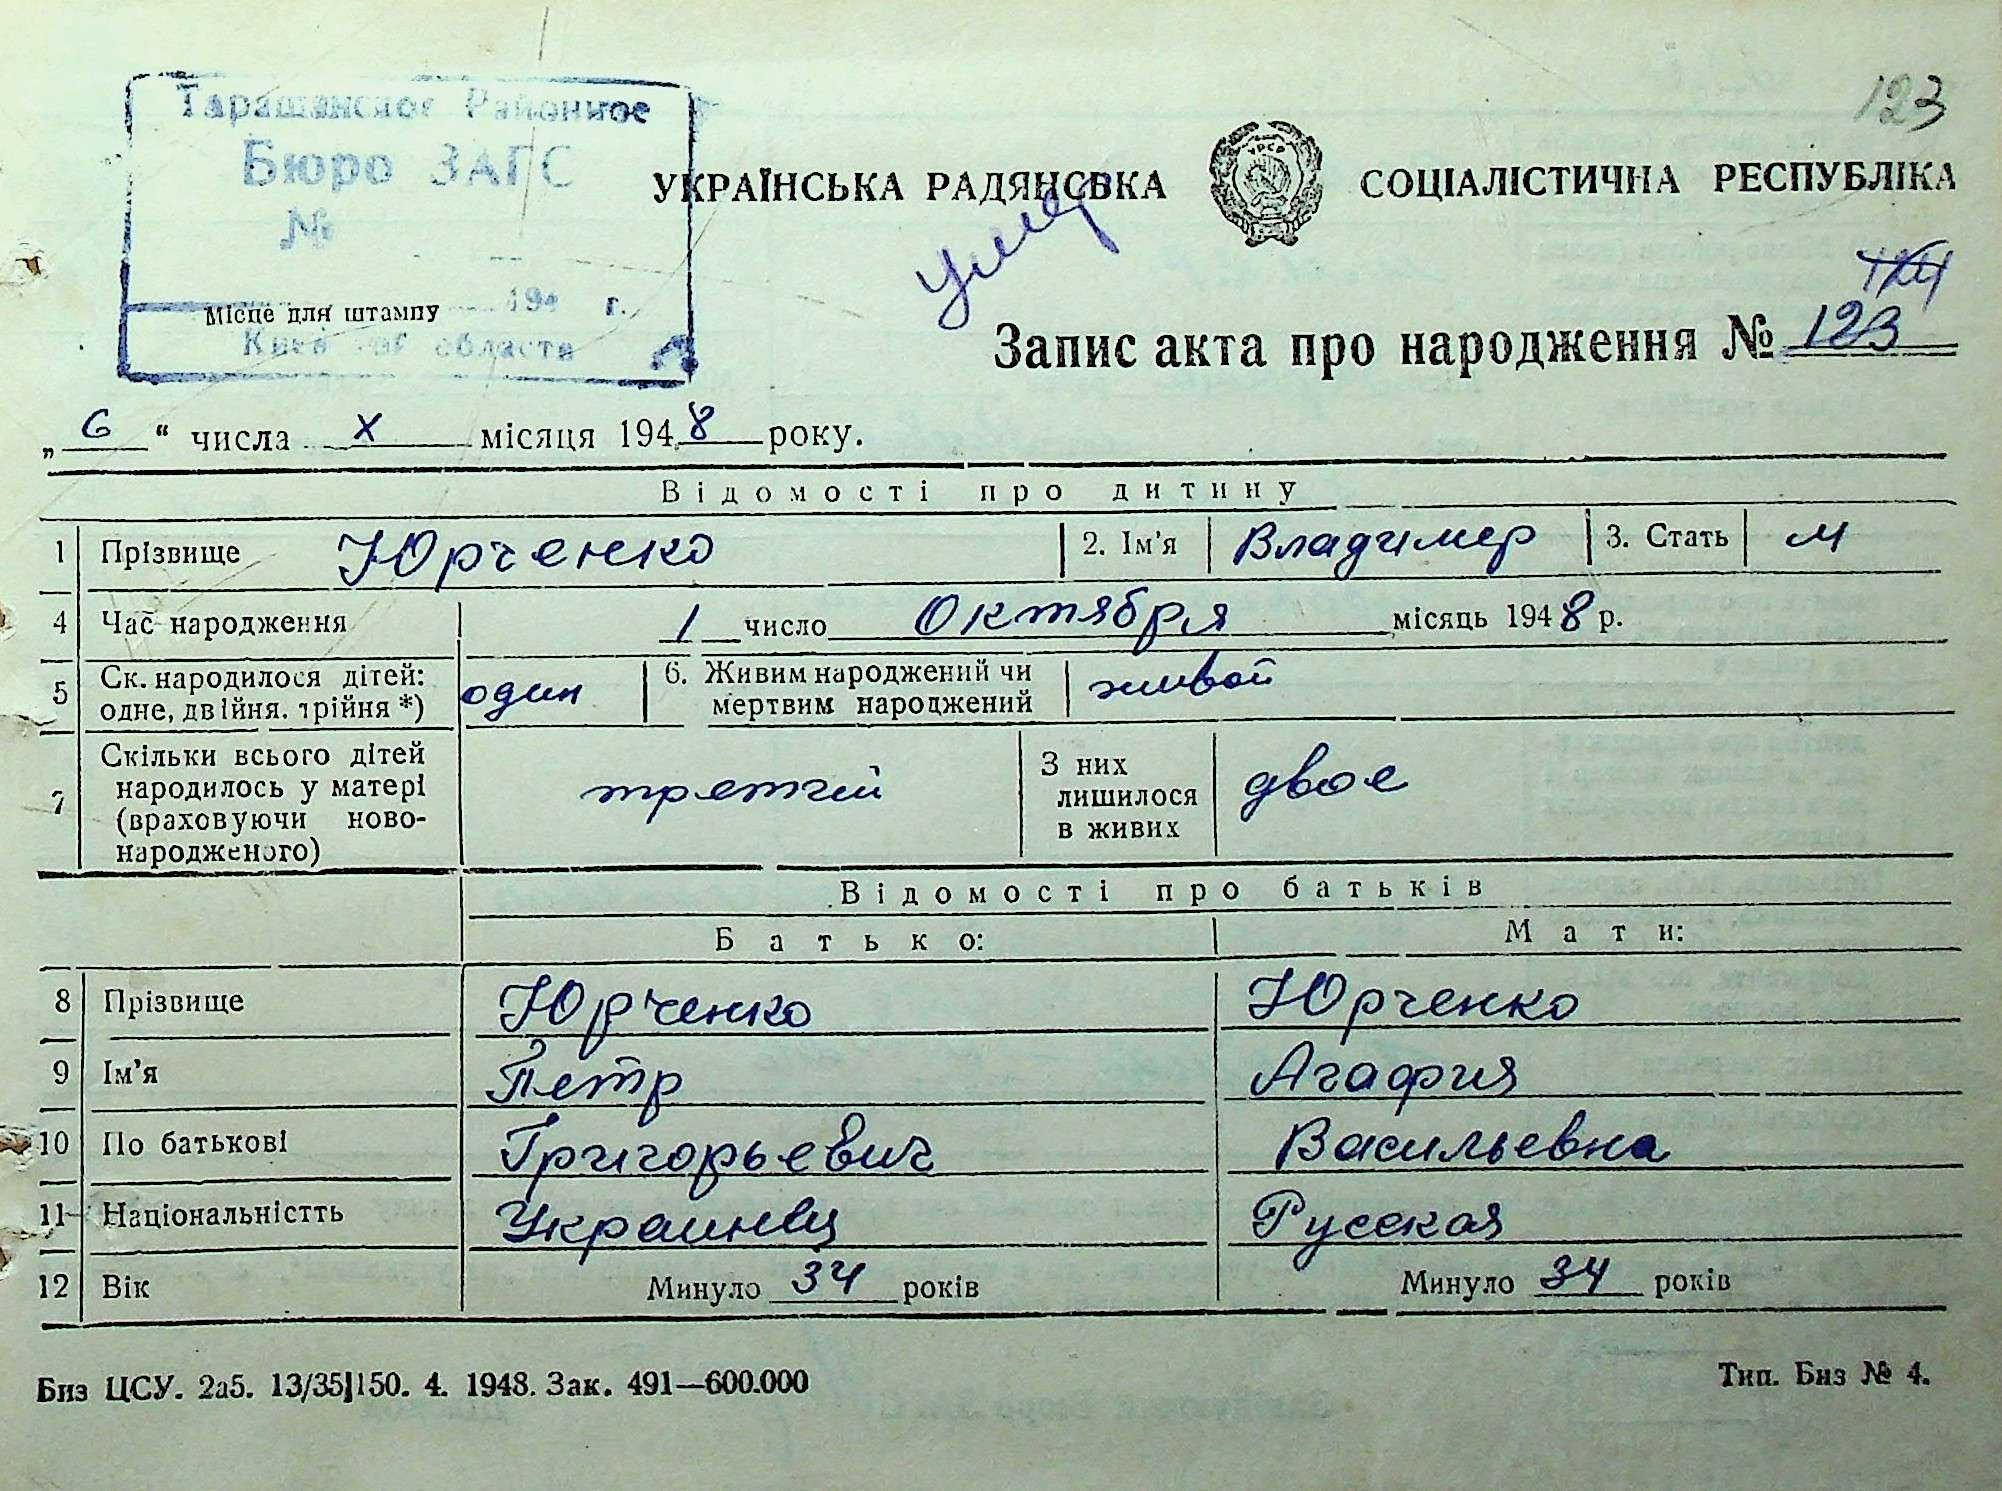 123
Таращанское Районное
Бюро ЗАГС
№
194 г.
Місце для штампу
области
УКРАЇНСЬКА РАДЯНСЬКА СОЦІАЛІСТИЧНА РЕСПУБЛІКА
УРСР
умер
124
Запис акта про народження № 123
„ 6 “ числа X місяця 1948 року.
Відомості про дитину
1 Прізвище Юрченко 2. Ім’я Владимер 3. Стать М
4 Час народження 1 число Октября місяць 1948 р.
5 Ск. народилося дітей: одне, двійня, трійня *) один 6. Живим народжений чи мертвим народжений живой
7 Скільки всього дітей народилось у матері (враховуючи ново-народженого) третий З них лишилося в живих двое
Відомості про батьків
Батько: Мати:
8 Прізвище Юрченко Юрченко
9 Ім’я Петр Агафия
10 По батькові Григорьевич Васильевна
11 Національністть Украинец Русская
12 Вік Минуло 34 років Минуло 34 років
Биз ЦСУ. 2а5. 13/35|150. 4. 1948. Зак. 491—600.000 Тип. Биз № 4.